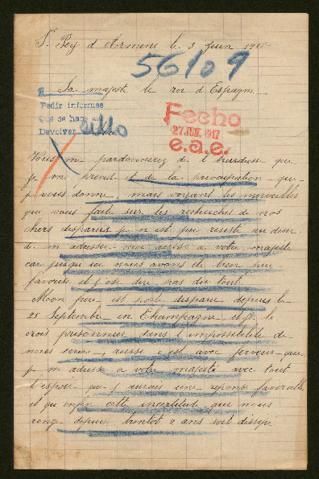 St Pey d'Armens le 3 juin 1917
56109
Sa majesté le roi d'Espagne
Pedir informes
Que se haga
Devolver
Fecho
27 JUN. 1917
e.a.e.
Vous me pardonnerez de l'hardiesse que
je prend et de la préoccupation que
je vous donne mais voyant les merveilles
que vous faite sur les recherches de nos
chers disparus je n'ai pu resisté au desir
de m'adresser moi aussi à votre majesté
car jusqu'ici nous avons de bien peu
favorisé et j'ose dire pas du tout
Mon frère est porté disparue depuis le
25 Septembre en Champagne et je le
crois prisonnier dans l'impossibilité de
nous écrire aussi c'est avec ferveur que
je m'adresse à votre majesté avec tout
l'espoir que j'aurais une réponse favorable
et qu'enfin cette incertitude qui nous
ronge depuis bientôt 2 ans soit dissipé